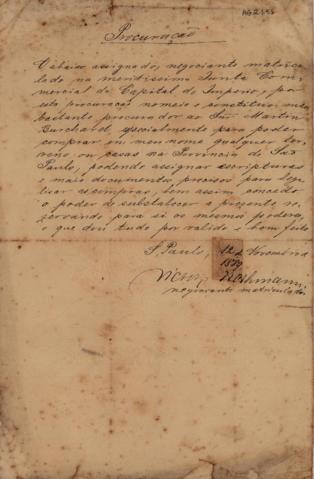 Procuração
O abaixo assignado, negociante matricu-
lado na meritissima Junta Com-
mercial da Capital do Imperio, por
esta procuração nomeio e constituo meu
bastante procurador ao Snr Martin
Burchard, especialmente para poder
comprar em meu nome qualquer ter-
reno ou casas na Provincia de São
Paulo, podendo assignar escripturas
e mais documentos precisos para
as compras, bem assim concedo
o poder de substabelecer a presente re-
servando para si os mesmos poderes,
o que dou tudo por valido e bom feito
S. Paulo, 12 de Novembro
Victor Nothmann,
negociante matriculado